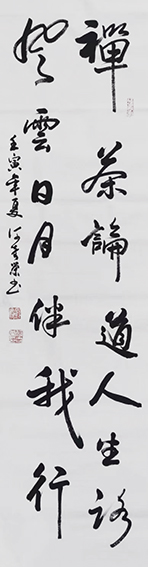 禪茶論道人生路
雲日月伴我行
壬寅年夏 书